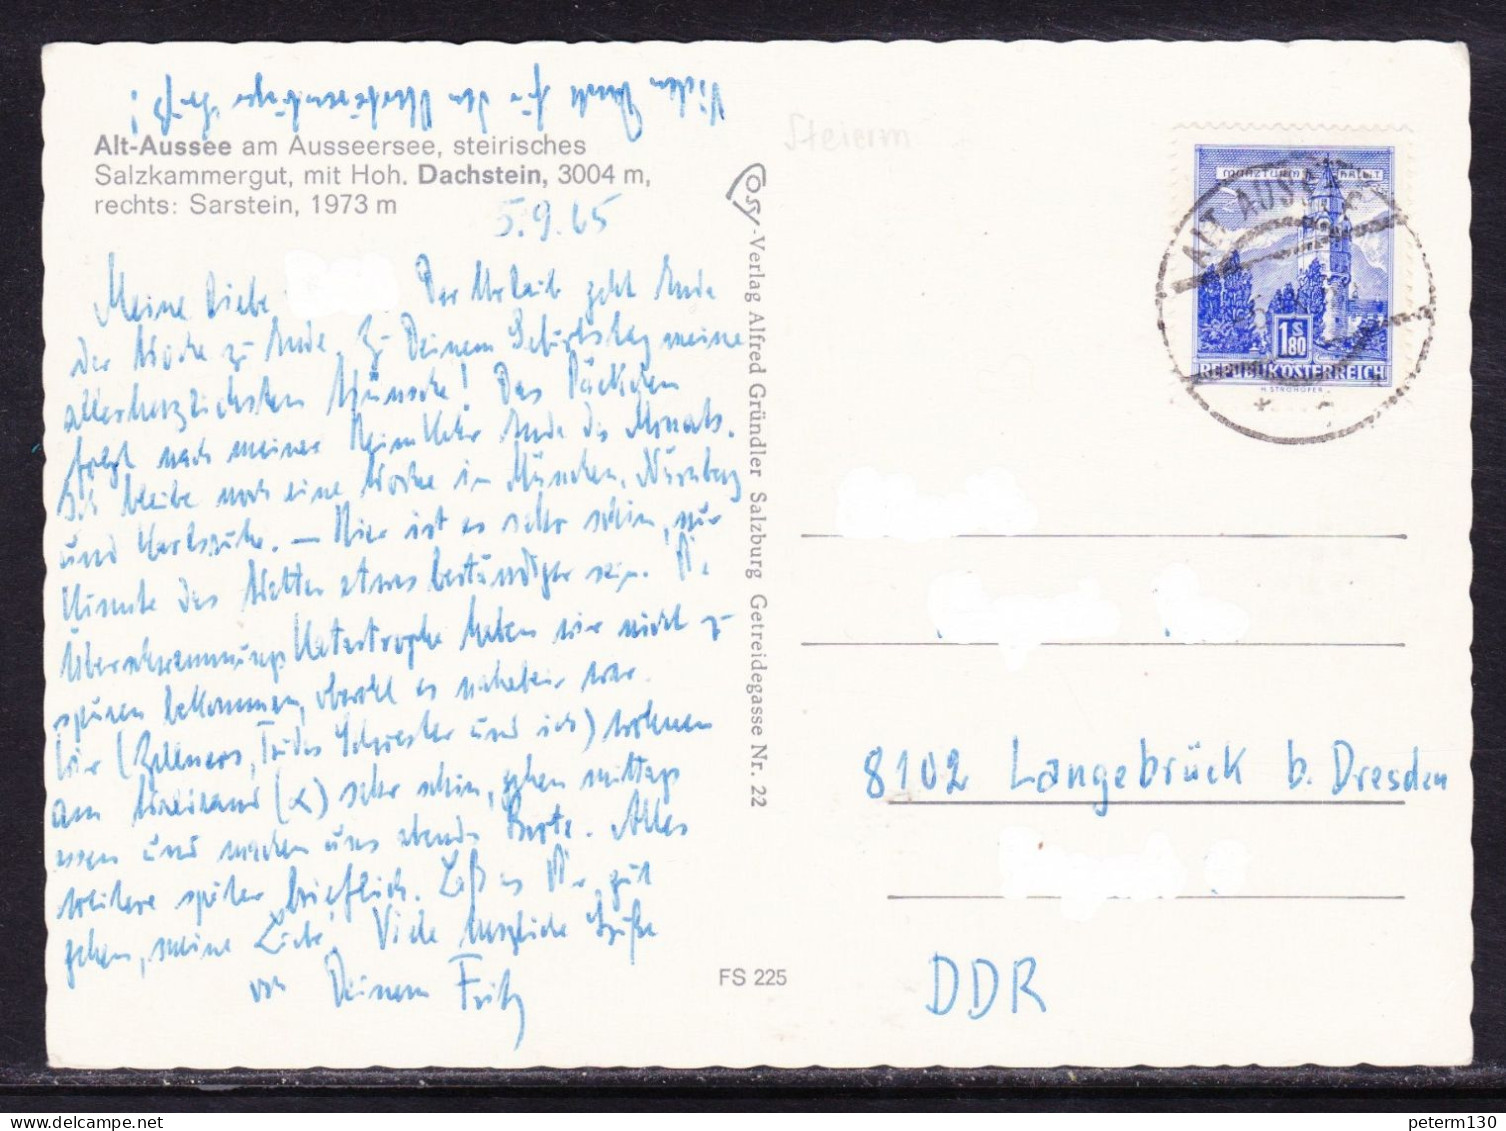 Vielen Dank für den übersendeten Gruß!
Alt-Aussee am Ausseersee, steirisches
Salzkammergut, mit Hoh. Dachstein, 3004 m,
rechts: Sarstein, 1973 m
5.9.65
Meine Liebe Der Urlaub geht Ende
der Woche zu Ende. Zu Deinem Geburtstag meine
allerherzlichsten Wünsche! Das Päckchen
folgt nach meiner Heimkehr Ende des Monats.
Ich bleibe noch eine Woche in München, Nürnberg
und Karlsruhe. — Hier ist es sehr schön, nur
könnte das Wetter etwas beständiger sein. Die
Überschwemmungskatastrophe haben wir nicht zu
spüren bekommen, obwohl es nahebei war.
Wir (Zellners, Trudes Schwester und ich) wohnen
am Waldrand (x) sehr schön, gehen mittags
essen und machen uns abends Brote. Alles
weitere später brieflich. Laß es Dir gut
gehen, meine Liebe. Viele herzliche Grüße
von Deinem Fritz
Cosy-Verlag Alfred Gründler Salzburg Getreidegasse Nr. 22
FS 225
Steierm
MÜNZTURM HALL I.T.
1 S 80
REPUBLIK ÖSTERREICH
H. STROHOFER
ALT AUSSEE
8102 Langebrück b. Dresden
DDR
peterm130
delcampe.net